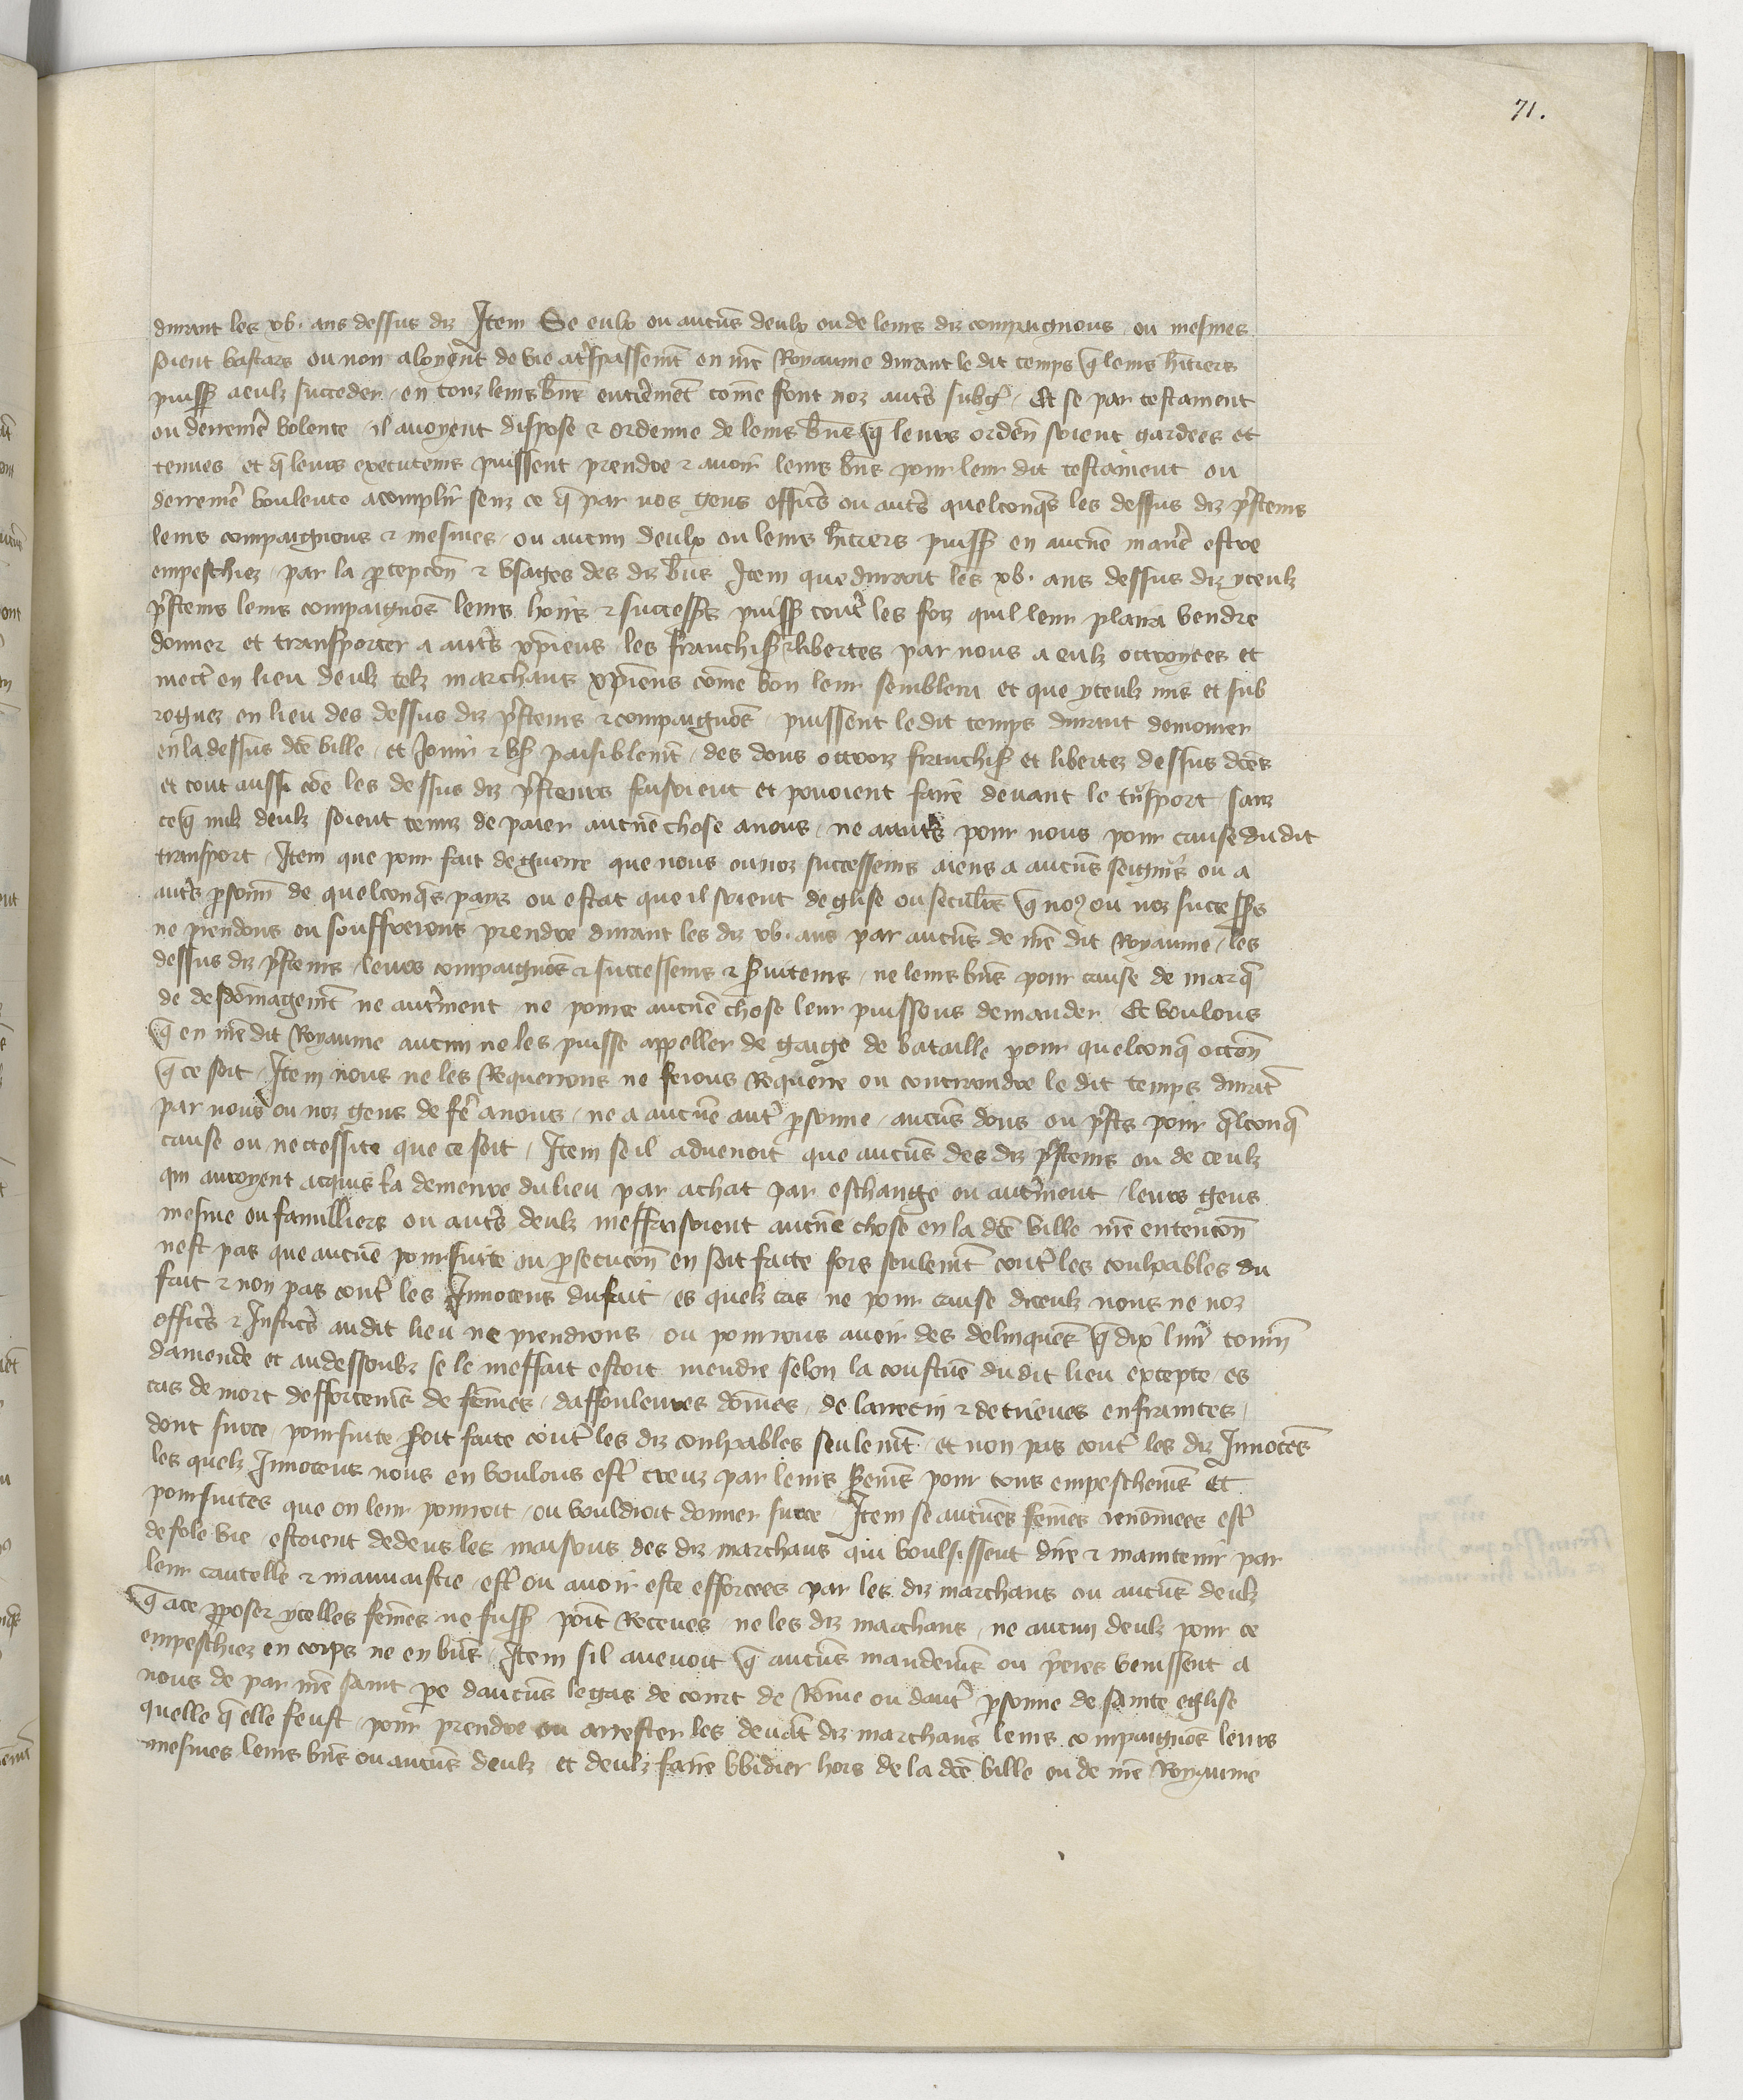 71.
durant les xv. ans dessus diz Item Se eulx ou aucuns deulx ou de leurs diz compaignons ou mesmes
soient bastars ou non aloyent de vie a trespassemt en nre Royaume durant le dit temps q leurs hitiers
puiss a eulz succeder en touz leurs bns entierement come font noz autres subgez Et se par testament
ou derreniere volente il avoyent dispose & ordenne de leurs bns q leurs orden soient gardees et
tenues et q leurs executeurs puissent prendre & avoir leurs bns pour leur dit testament ou
derreniere voulente acomplir senz ce q par nos gens officers ou autres quelconqs les dessus diz presteurs
leurs compaignons & mesmes ou aucun deulx ou leurs hitiers puiss en aucune maniere estre
empeschiez par la percepcon & usages des diz bns Item que durant les xv. ans dessus diz yceulz
presteurs leurs compaignons leurs hoirs & success puiss toutes les foiz quil leur plaira vendre
donner et transporter a autres xpiens les franchises & libertes par nous a eulz octroyees et
mectre en lieu deulz telz marchans xpiens come bon leur semblera et que yceulz mis et sub
roguez en lieu des dessus diz presteurs & compaignons puissent le dit temps durant demourer
en la dessus dce ville et Jouir & user paisiblemt des dons octroiz franchises et libertez dessus dces
et tout aussi coe les dessus diz presteurs faisoient et povoient faire devant le transport sanz
ce q nulz deulz soient tenuz de paier aucune chose a nous ne a autres pour nous pour cause du dit
transport Item que pour fait de guerre que nous ou noz successeurs aiens a aucuns seigneurs ou a
autres personnes de quelconqs pays ou estat que il soient deglise ou seculiers q nos ou noz success
ne prendons ou soufferrons prendre durant les diz xv. ans par aucuns de nre dit Royaume les
dessus diz presteurs leurs compaignons & successeurs & serviteurs ne leurs bns pour cause de marq
de desdomagemt ne autrement ne pource aucune chose leur puissons demander Et voulons
q en nre dit Royaume aucun ne les puisse appeller de gaige de bataille pour quelconq occon
q ce soit Item nous ne les Requerrons ne ferons Requerre ou contraindre le dit temps durant
par nous ou noz gens de fere a nous ne a aucune autre personne aucuns dons ou prests pour qlconq
cause ou neccessite que ce soit Item se il advenoit que aucuns des diz presteurs ou de ceulz
qui auroyent acquis la demeure du lieu par achat par eschange ou autrement leurs gens
mesme ou familliers ou autres deulz meffaisoient aucune chose en la dce ville nre entencon
nest pas que aucune poursuite ou persecucon en soit faite fors seulemt contre les coulpables du
fait & non pas contre les Innocens du fait es quelz cas ne pour cause diceulz nous ne noz
officers & Justicers au dit lieu ne prendrons ou pourrons avoir des delinquens q dix livres tourn
damende et audessoubz se le meffait estoit mendre selon la coustume du dit lieu excepte es
cas de mort defforcemens de femmes daffouleures dommes de larrecin & de trieves enfraintes
dont sur ce poursuite seroit faite contre les diz coulpables seulemt et non pas contre les diz Innocens
les quelz Innocens nous en voulons estre creuz par leurs seremens pour tous empeschemens et
poursuites que on leur pourroit ou vouldroit donner sur ce Item se aucunes femmes renommees estre
de fole vie estoient dedens les maisons des diz marchans qui voulsissent dire & maintenir par
leur cautelle & mauvaistie estre ou avoir este efforcees par les diz marchans ou aucuns deulz
q a ce proposer ycelles femes ne fuss point Receues ne les diz marchans ne aucun deulz pour ce
empeschiez en corps ne en bns Item sil avenoit q aucuns mandemens ou prieres venissent a
nous de par nre saint pere daucuns legas de court de Rome ou dautre personne de sainte eglise
quelle q elle feust pour prendre ou arrester les devant diz marchans leurs compaignons leurs
mesmes leurs bns ou aucuns deulz et deulz faire vvidier hors de la dce ville ou de nre Royaume